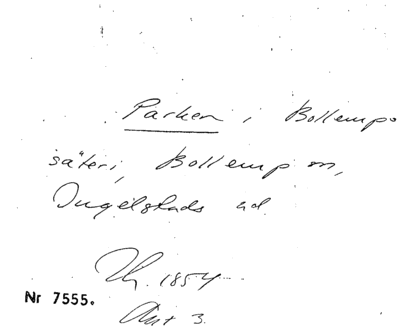 Parken i Bollerup
säteri, Bollerup sn,
Ingelstads hd
Th. 1854
Nr 7555.
Ant 3.